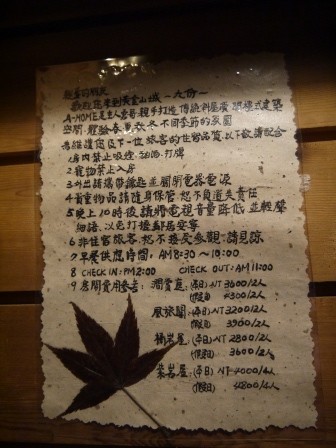 親愛的朋友
歡迎您來到黃金山城~九份~
A-HOME是主人唐哥親手打造 傳統斜屋廣 樓樓式建築
空間.體驗春夏秋冬不同季節的氛圍
為維護您及下一位旅客的住宿品質.以下敬請配合
1房內禁止吸煙.打牌
2寵物禁止入房
3外出請攜帶鑰匙並關閉電器電源
4貴重物品請隨身保管.恕不負遺失責任
5晚上10時後請將電視音量降低並輕聲
細語.以免打擾鄰居安寧
6非住宿旅客.恕不接受參觀.請見諒
7早餐供應時間:AM8:30~10:00
8 CHECK IN:PM2:00 CHECK OUT:AM11:00
9房間費用參考:潤賞庭:(平日)NT3600/2人
(假日)4300/2人
風旅閣:(平日)NT3200/2人
(假日)3960/2人
楠岩屋:(平日)NT2800/2人
(假日)3600/2人
紫岩屋:(平日)NT4000/4人
(假日)4800/4人